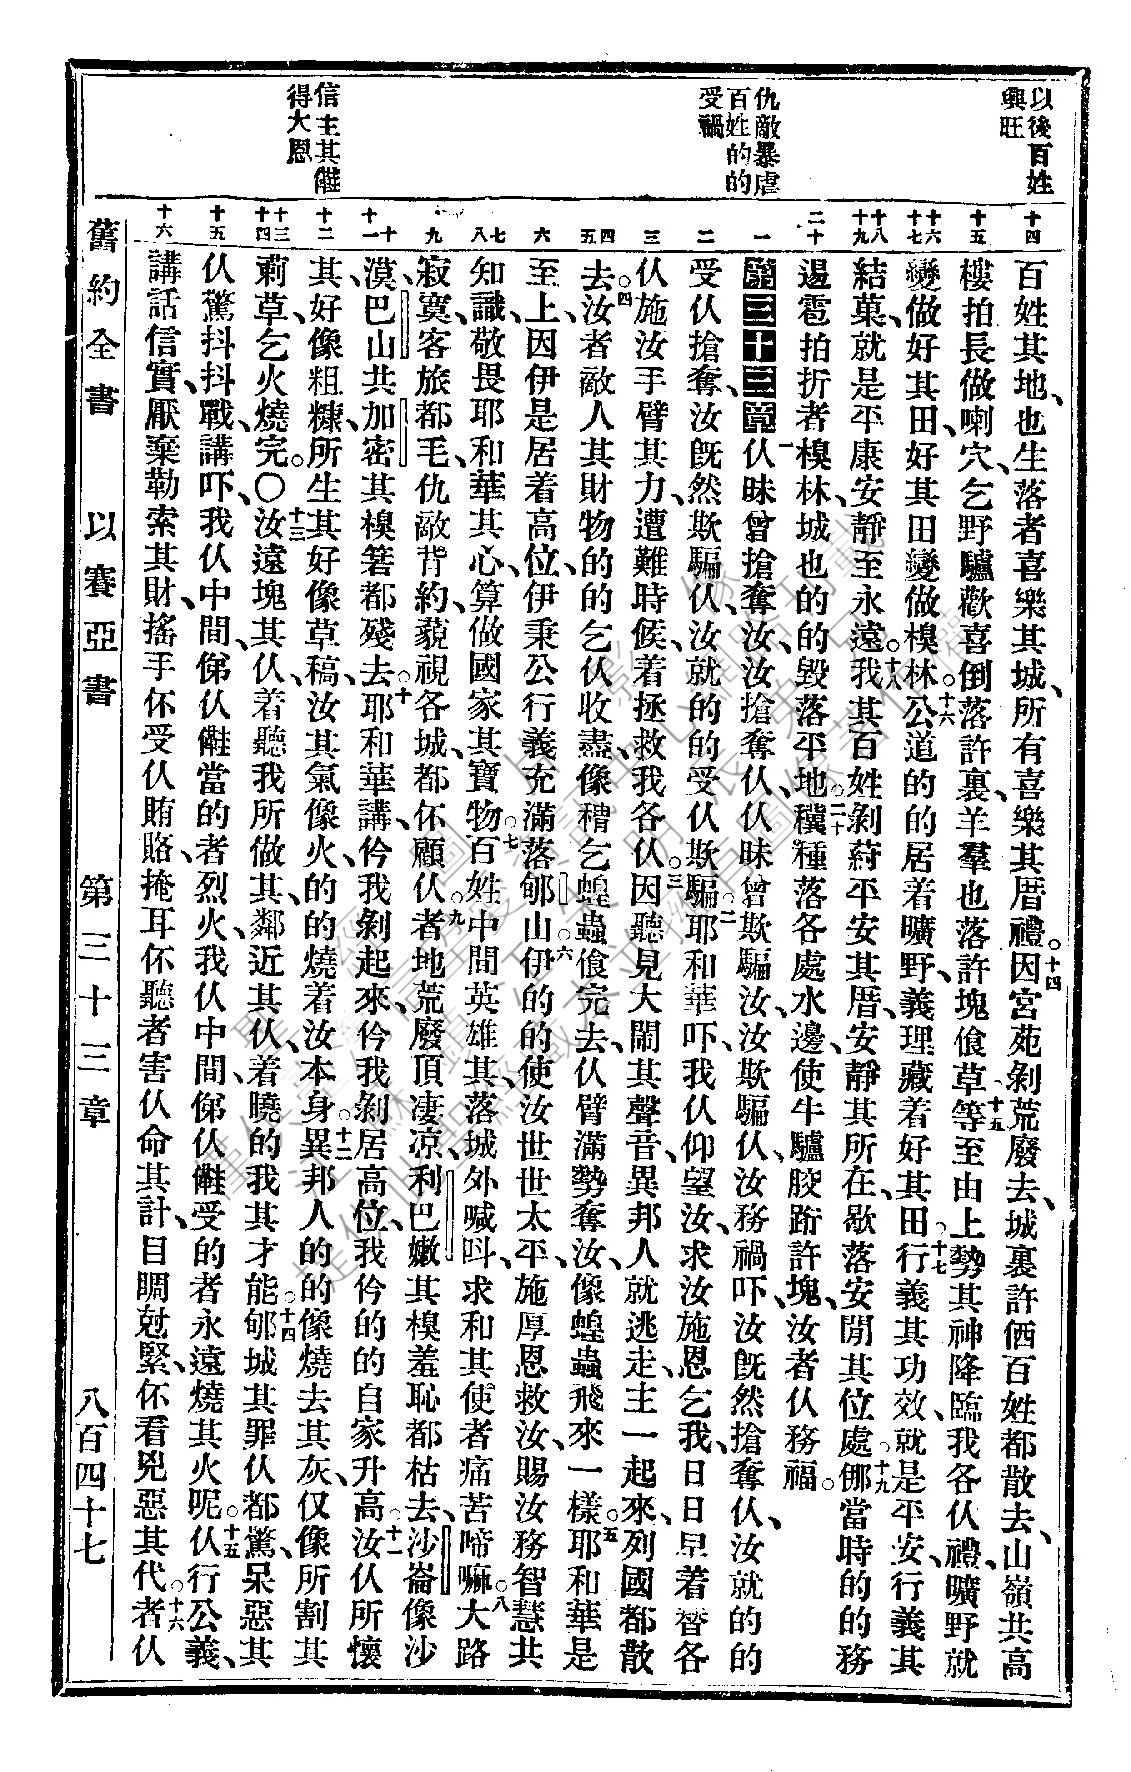 以後百姓
興旺
仇敵暴虐
百姓的的
受禍
信主其㒰
得大恩
十四
十五
十六
十七
十八
十九
二十
一
二
三
四
五
六
七
八
九
十
十一
十二
十三
十四
十五
十六
百姓其地、也生落者喜樂其城、所有喜樂其厝禮。十四因宮苑剝荒廢去、城裏許侕百姓都散去、山嶺共高
樓拍長做喇穴、乞野驢歡喜倒落許裏、羊羣也落許塊飡草等、十五至由上勢其神降臨我各仈禮、曠野就
變做好其田、好其田變做樸林。十六公道的的居着曠野、義理藏着好其田。十七行義其功效、就是平安、行義其
結菓、就是平康安靜至永遠。十八我其百姓剝蒔平安其厝、安靜其所在、歇落安閒其位處。十九㑚當時的的務
遏雹拍折者樸林、城也的的毀落平地。二十穬種落各處水邊、使牛驢骹跲許塊、汝者仈務福。
第三十三章 一仈昧曾搶奪汝、汝搶奪仈、仈昧曾欺騙汝、汝欺騙仈、汝務禍吓、汝旣然搶奪仈、汝就的的
受仈搶奪、汝旣然欺騙仈、汝就的的受仈欺騙。二耶和華吓、我仈仰望汝、求汝施恩乞我、日日早着替各
仈施汝手臂其力、遭難時候、着拯救我各仈。三因聽見大鬧其聲音、異邦人就逃走、主一起來、列國都散
去。四汝者敵人其財物的的乞仈收盡、像穳乞蝗蟲飡完去、仈臂滿勢奪汝、像蝗蟲飛來一樣。五耶和華是
至上、因伊是居着高位、伊秉公行義充滿落郇山。六伊的的使汝世世太平、施厚恩救汝、賜汝務智慧共
知識、敬畏耶和華其心、算做國家其寶物。七百姓中間英雄其、落城外喊呌、求和其使者痛苦啼嘛。八大路
寂寞、客旅都毛、仇敵背約、藐視各城、都伓顧仈。九者地荒廢頂凄凉、利巴嫩其樸羞恥都枯去、沙崙像沙
漠、巴山共加密其樸箬都殘去。十耶和華講、伶我剝起來、伶我剝居高位、我伶的的自家升高。十一汝仈所懷
其、好像粗糠、所生其、好像草稿、汝其氣像火、的的燒着汝本身。十二異邦人的的像燒去其灰、仅像所割其
莿草、乞火燒完。〇十三汝遠塊其仈、着聽我所做其、鄰近其仈、着曉的我其才能。十四郇城其罪仈都驚呆、惡其
仈驚抖抖戰、講吓、我仈中間、俤仈㒰當的者烈火、我仈中間、俤仈㒰受的者永遠燒其火呢。十五仈行公義、
講話信實、厭棄勒索其財、搖手伓受仈賄賂、掩耳伓聽者害仈命其計、目瞯尅緊、伓看兇惡其代。十六者仈
舊約全書　以賽亞書　第三十三章　八百四十七